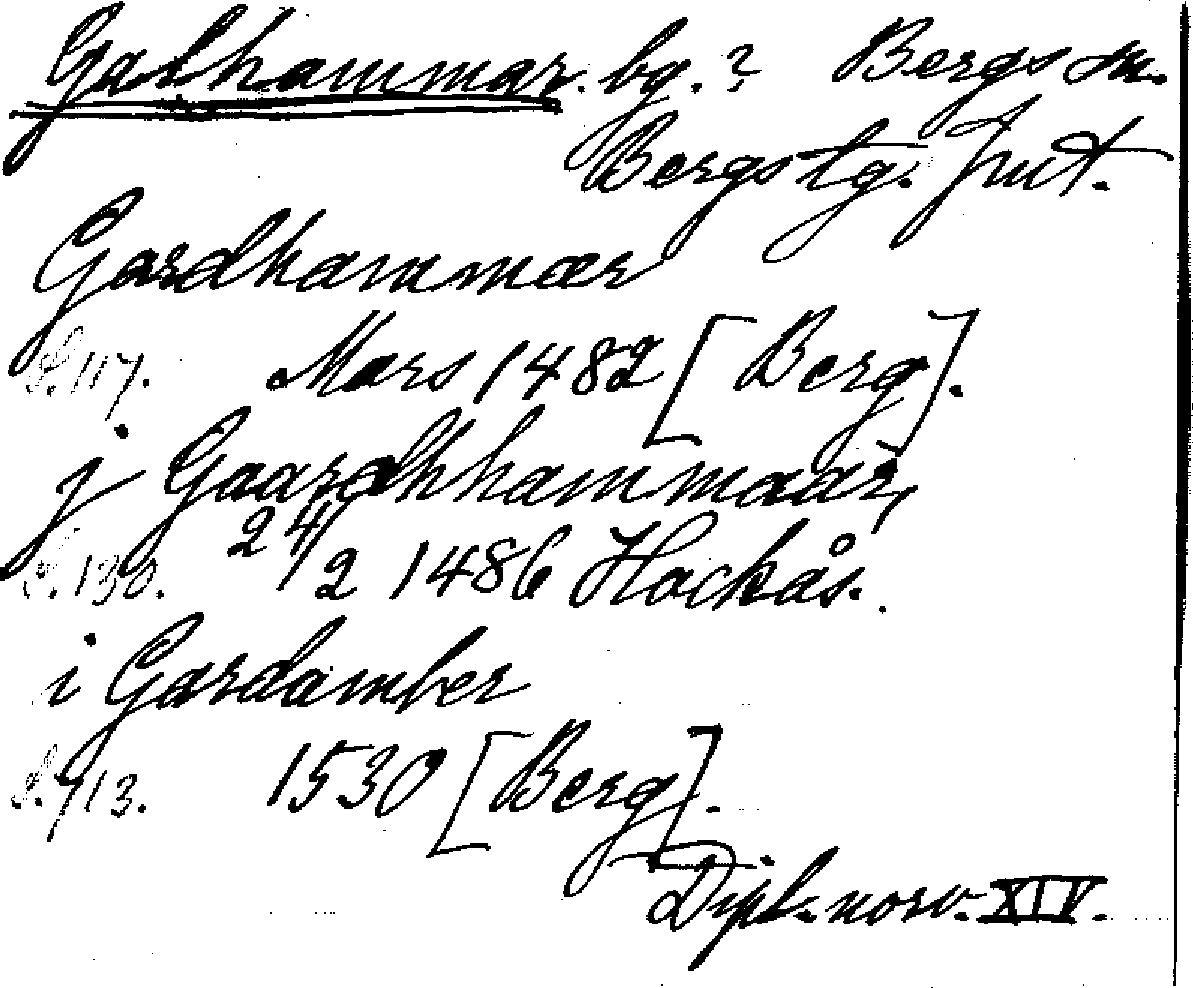 Galhammar. bg.? Bergs sn.
Bergs tg. Jmt.
Gardhammær
S. 117. Mars 1482 [Berg].
j Gaardhhammaar,
S. 130. 24/2 1486 Hackås.
i Gardamber
S. 713. 1530 [Berg].
Dipl. norv. XIV.